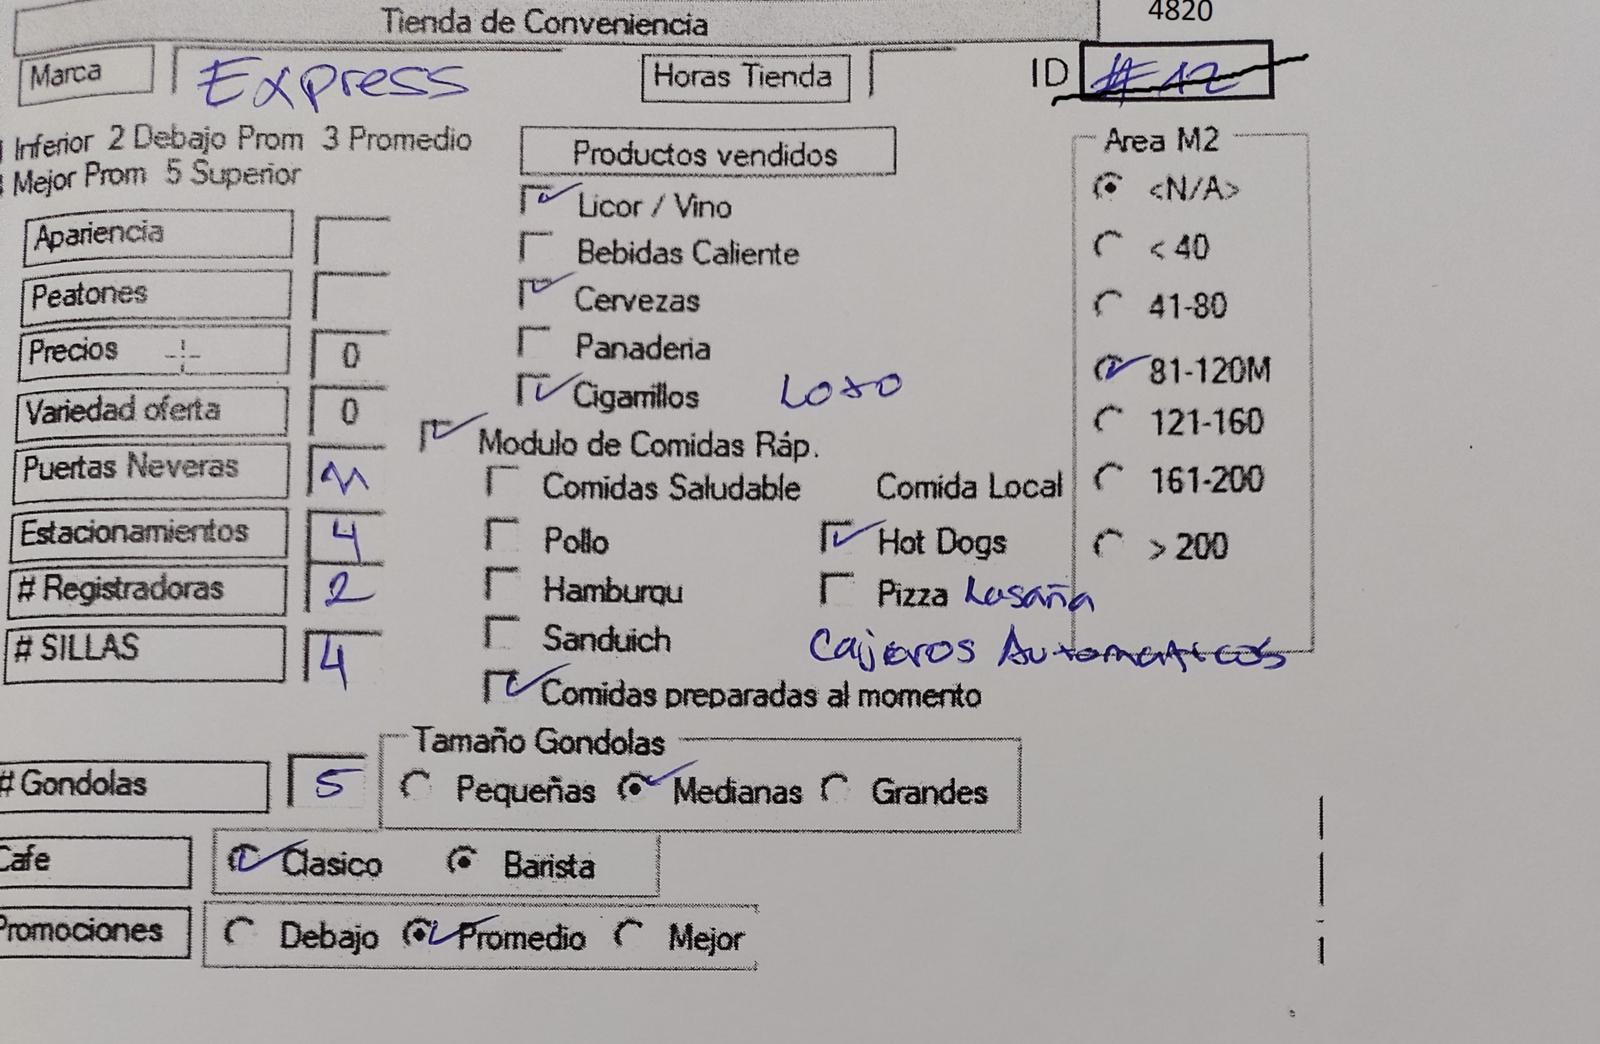 4820
Tienda de Conveniencia
Marca Express Horas Tienda ID #12
Inferior 2 Debajo Prom 3 Promedio
Mejor Prom 5 Superior
Productos vendidos
Area M2
Licor / Vino <N/A>
Apariencia
Bebidas Caliente < 40
Peatones
Cervezas 41-80
Precios 0
Panaderia
Cigarrillos 81-120M
Variedad oferta 0
Modulo de Comidas Ráp. 121-160
Puertas Neveras
Comidas Saludable Comida Local 161-200
Estacionamientos 4
Pollo Hot Dogs > 200
# Registradoras 2
Hamburqu Pizza Lasaña
# SILLAS 4
Sanduich Cajeros Automaticos
Comidas preparadas al momento
Tamaño Gondolas
# Gondolas 5 Pequeñas Medianas Grandes
Cafe Clasico Barista
Promociones Debajo Promedio Mejor